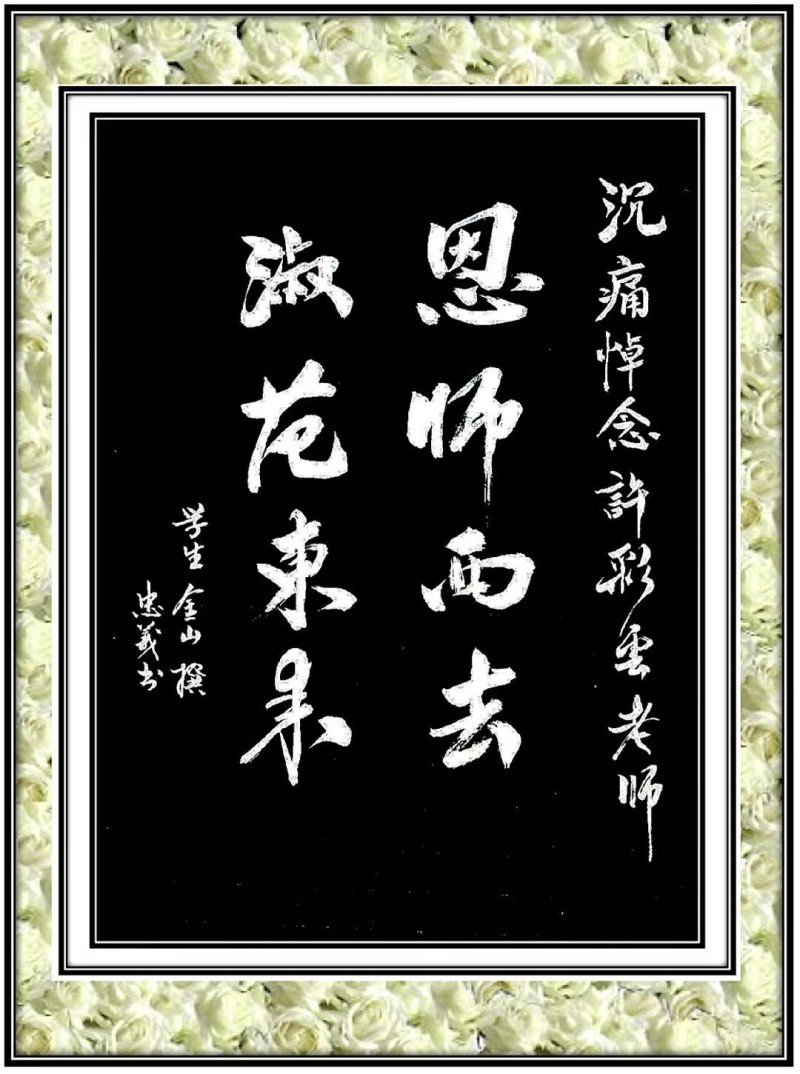 沉痛悼念許彩雲老师
恩师西去
淑范東来
学生金山撰
忠義书